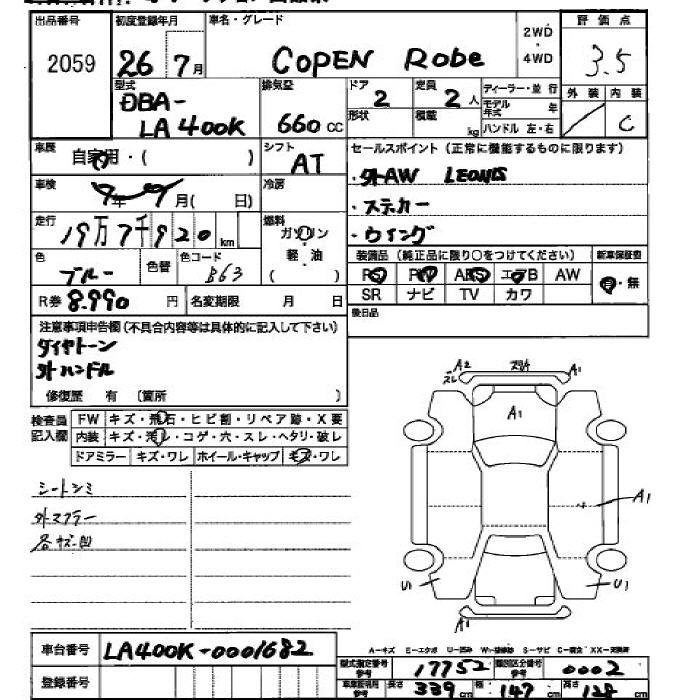 出品番号 初度登録年月 車名・グレード 2WD・4WD 評価点
2059 26年7月 COPEN Robe 3.5
型式 排気量 ドア 定員 ディーラー・並行 外装 内装
DBA- 2 2人 モデル年式 年
LA400K 660cc 形状 積載 kg ハンドル 左・右 C
車歴 自家用・( ) シフト AT セールスポイント(正常に機能するものに限ります)
・外AW LEONIS
車検 年 月( 日) 冷房 ・ステッカー
走行 19万7千920km 燃料 ガソリン ・ウイング
軽・油
( )
色 ブルー 色替 色コード B63 装備品(純正品に限り○をつけてください) 新車保証書
PS PW ABS エアB AW 有・無
R券 8.990円 名変期限 月 日 SR ナビ TV カワ
後日品
注意事項申告欄(不具合内容等は具体的に記入して下さい)
ダイヤトーン
外ハンドル
修復歴 有 〔箇所 〕
検査員記入欄 FW キズ・飛石・ヒビ割・リペア跡・X要
内装 キズ・汚レ・コゲ・穴・スレ・ヘタリ・破レ
ドアミラー キズ・ワレ ホイール・キャップ キズ・ワレ
シートシミ
外マフラー
各キズ・凹
A2 スレ A1
A1
A1
U1 U1
A1
A-キズ E-エクボ U-凹み W-補修跡 S-サビ C-腐食 XX-交換済
車台番号 LA400K-0001682
型式指定番号 参考 17752 類別区分番号 参考 0002
登録番号
車車証明用 参考 長さ 339cm 幅 147cm 高さ 128cm